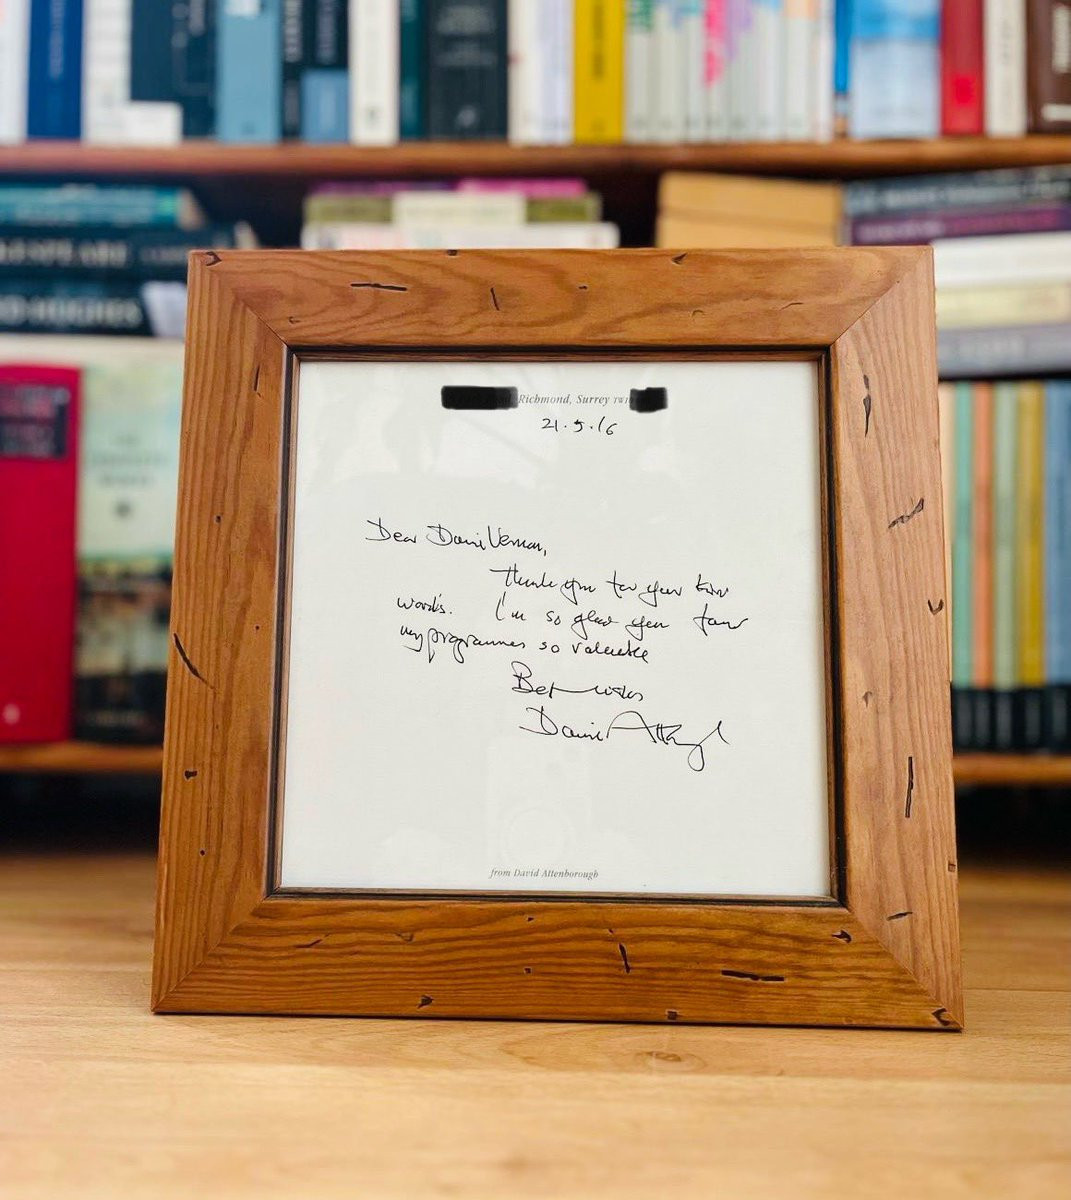 Richmond, Surrey TW
21.5.16
Dear David Vernon,
Thank you for your kind
words. I'm so glad you found
my programmes so valuable
Best wishes
David Attenborough
from David Attenborough